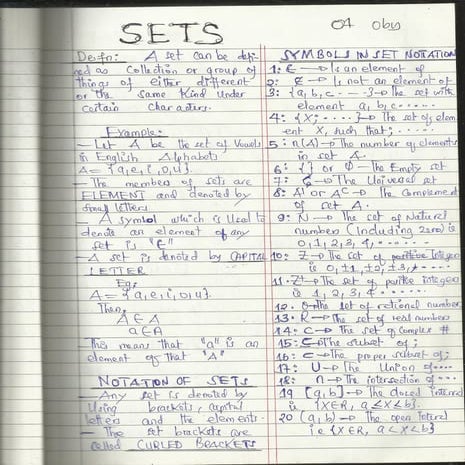 SETS
Defn: A set can be defi-
ned as collection or group of
things of either different
or the same kind under
certain characters.
Example:-
- Let A be the set of vowels
in English Alphabets
A = {a, e, i, o, u}.
- The members of sets are
ELEMENT and denoted by
small letters
- A symbol which is used to
denote an element of any
set is "∈"
- A set is denoted by CAPITAL
LETTER
Eg:
A = {a, e, i, o, u}.
Then,
A ∈ A
a ∈ A
- This means that "a" is an
element of that "A"
NOTATION OF SETS
- Any set is denoted by
Using brackets, capital
letters and the elements.
- The set brackets are
called CURLED BRACKETS
04
SYMBOLS IN SET NOTATION
1: ∈ → Is an element of
2: ∉ → Is not an element of
3: {a, b, c - - - } → The set with
element a, b, c ......
4: {X; .....} → The set of elem
ent X, such that; ......
5: n(A) → The number of elements
in set A.
6: { } or Ø → The Empty set
7: → The Universal set
8: A' or Aᶜ → The Complement
of set A.
9: N → The set of Natural
numbers (Including Zero) is
0, 1, 2, 3, 4, ......
10: Z → The set of positive Integers
is 0, ±1, ±2, ±3, ......
11: Z⁺ → The set of positive integers
is 1, 2, 3, 4 ......
12. Q → The set of rational number
13. R → The set of real numbers
14: C → The set of Complex #
15: ⊆ → The subset of ;
16: ⊂ → The proper subset of;
17: U → The Union of ....
18: ∩ → The intersection of ....
19 [a, b] → The closed interval
is {X∈R, a ≤ X ≤ b}.
20 (a, b) → The open Interal
i.e {X∈R, a < X < b}